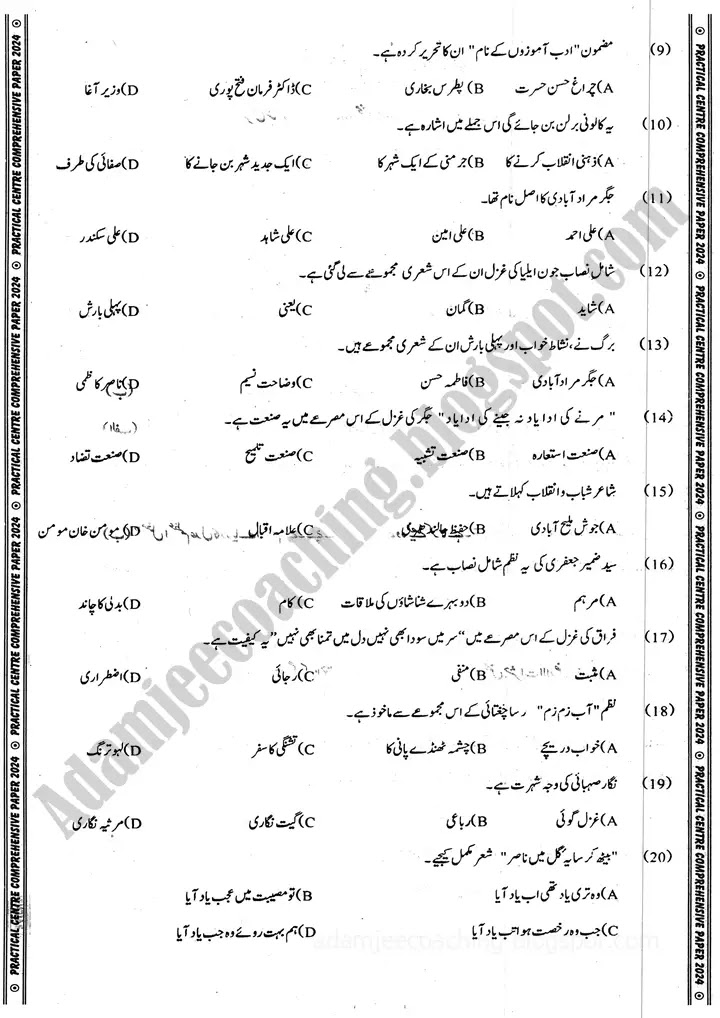 PRACTICAL CENTRE COMPREHENSIVE PAPER 2024
(9) مضمون "ادب آموزوں کے نام" ان کا تحریر کردہ ہے۔
A) چراغ حسن حسرت B) پطرس بخاری C) ڈاکٹر فرمان فتح پوری D) وزیر آغا
(10) یہ کالونی برلن بن جائے گی اس جملے میں اشارہ ہے۔
A) ذہنی انقلاب کرنے کا B) جرمنی کے ایک شہر کا C) ایک جدید شہر بن جانے کا D) صفائی کی طرف
(11) جگر مراد آبادی کا اصل نام تھا۔
A) علی احمد B) علی امین C) علی شاہد D) علی سکندر
(12) شامل نصاب جون ایلیا کی غزل ان کے اس شعری مجموعے سے لی گئی ہے۔
A) شاید B) گمان C) یعنی D) پہلی بارش
(13) برگ نے، نشاط خواب اور پہلی بارش ان کے شعری مجموعے ہیں۔
A) جگر مراد آبادی B) فاطمہ حسن C) وضاحت نسیم D) ناصر کاظمی
(14) "مرنے کی ادا یاد نہ جینے کی ادا یاد" جگر کی غزل کے اس مصرعے میں یہ صنعت ہے۔
A) صنعت استعارہ B) صنعت تشبیہ C) صنعت تلمیح D) صنعت تضاد
(15) شاعر شباب و انقلاب کہلاتے ہیں۔
A) جوش ملیح آبادی B) حفیظ جالندھری C) علامہ اقبال D) مومن خان مومن
(16) سید ضمیر جعفری کی یہ نظم شامل نصاب ہے۔
A) مرہم B) دو بہرے شناشاؤں کی ملاقات C) کام D) بدلی کا چاند
(17) فراق کی غزل کے اس مصرعے میں "سر میں سودا بھی نہیں دل میں تمنا بھی نہیں" یہ کیفیت ہے۔
A) مثبت B) منفی C) رجائی D) اضطراری
(18) نظم "آب زم زم" رسا چغتائی کے اس مجموعے سے ماخوذ ہے۔
A) خواب دریچے B) چشمہ ٹھنڈے پانی کا C) تشنگی کا سفر D) لہو ترنگ
(19) نگار صہبائی کی وجہ شہرت ہے۔
A) غزل گوئی B) رباعی C) گیت نگاری D) مرثیہ نگاری
(20) "بیٹھ کر سایہ گل میں ناصر" شعر مکمل کیجیے۔
A) وہ تری یاد تھی اب یاد آیا B) تو مصیبت میں عجب یاد آیا
C) جب وہ رخصت ہوا تب یاد آیا D) ہم بہت روئے وہ جب یاد آیا
Adamjeecoaching.blogspot.com
adamjeecoaching.blogspot.com
PRACTICAL CENTRE COMPREHENSIVE PAPER 2024